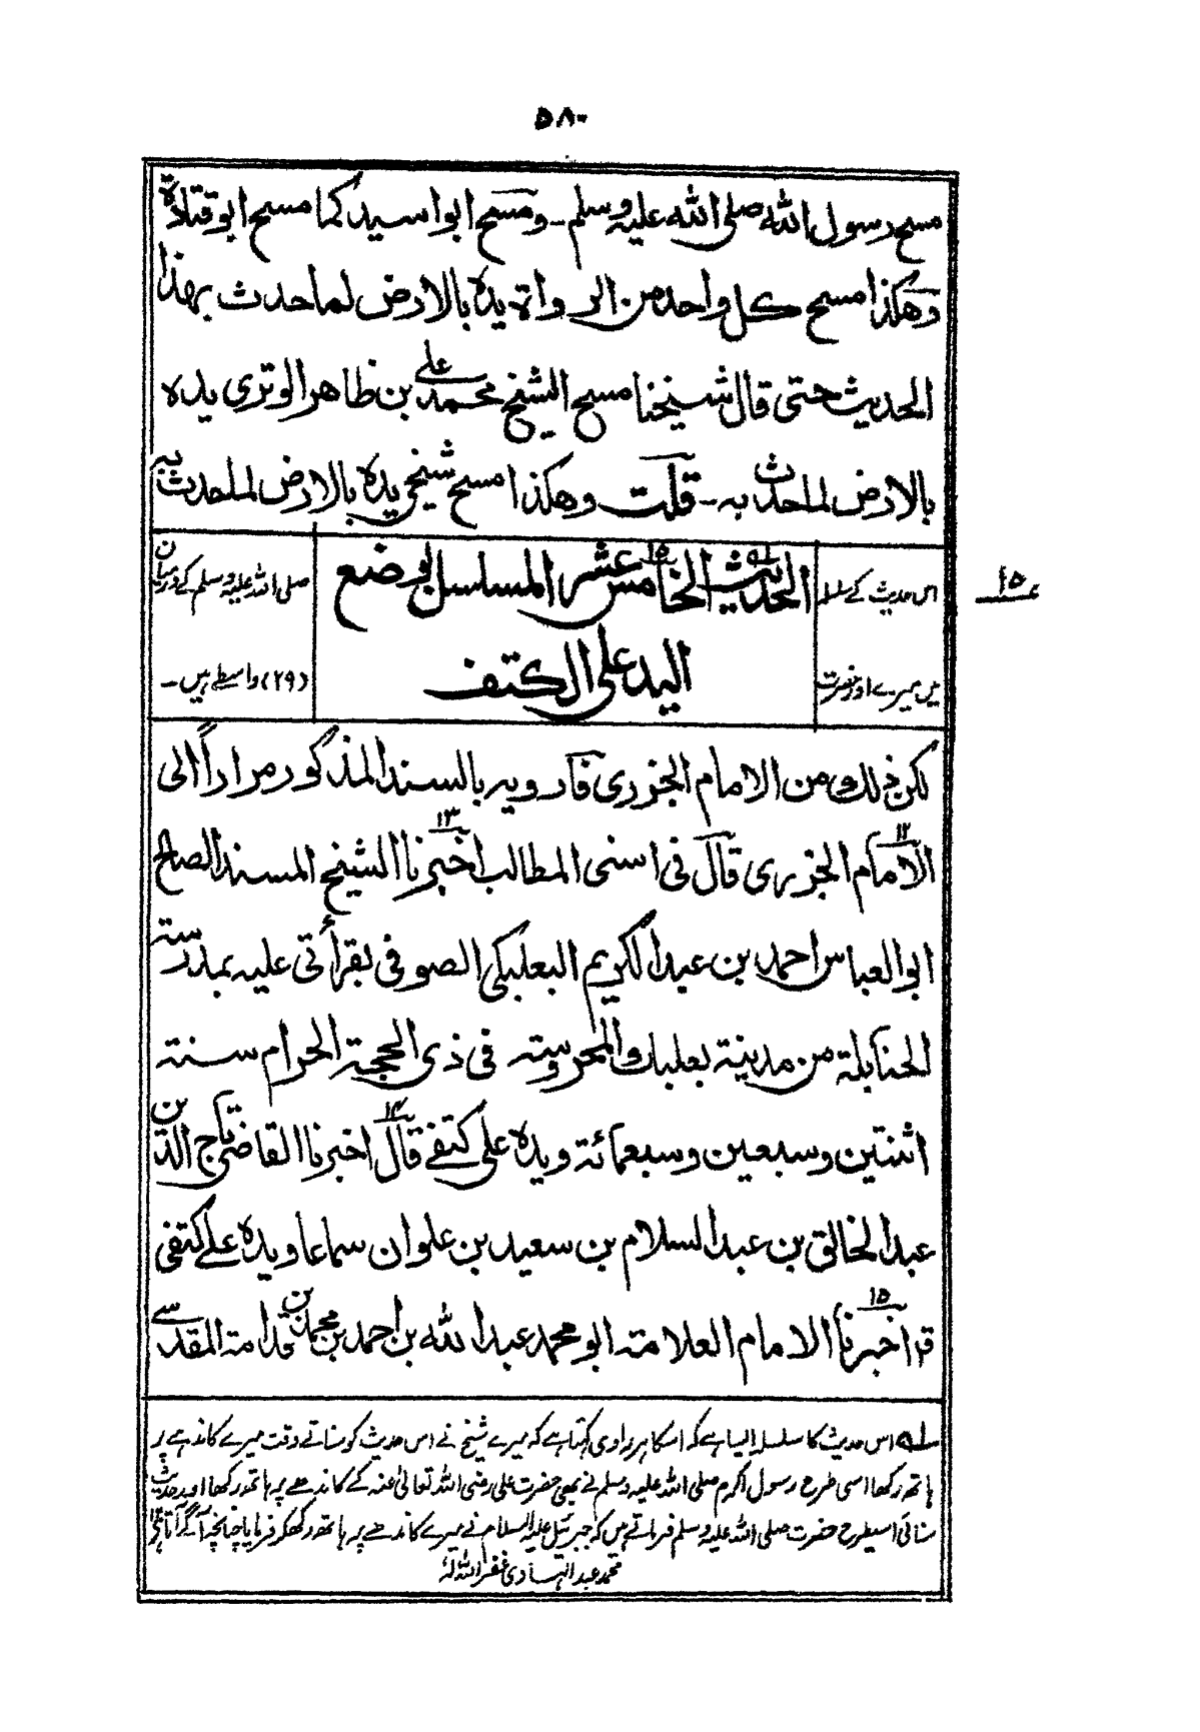 ٥٨٠
مسح رسول الله صلى الله عليه وسلم ـ ومسح ابو اسيد كما مسح ابو قتادة
وهكذا مسح كل واحد من الرواة يده بالارض لما حدث بهذا
الحديث حتى قال شيخنا مسح الشيخ محمد علي بن ظاهر الوترى يده
بالارض لما حدث به ـ قلت وهكذا مسح شيخى يده بالارض لما حدث به
١٥
اس حدیث کے سلسلہ
میں میرے اور حضرت
الحديث الخامس عشر المسلسل بوضع
اليد على الكتف
صلی اللہ علیہ وسلم کے درمیان
(۲۹) واسطے ہیں ۔
لكن ذلك من الامام الجزرى فارويه بالسند المذكور مراراً الى
الامام الجزرى قال فى اسنى المطالب اخبرنا الشيخ المسند الصالح
ابو العباس احمد بن عبد الكريم البعلبكى الصوفى بقرأتى عليه بمدرسته
الحنابلة من مدينة بعلبك المحروسته فى ذى الحجة الحرام سنته
اثنتين وسبعين وسبعمائة ويده على كتفے قال اخبرنا القاضى تاج الدين
عبد الخالق بن عبد السلام بن سعيد بن علوان سماعا ويده علے كتفى
قر اخبرنا الامام العلامته ابو محمد عبد الله بن احمد بن محمد بن قدامته المقدسے
لـه اس حدیث کا سلسلہ ایسا ہے کہ اسکا ہر راوی کہتا ہے کہ میرے شیخ نے اس حدیث کو سناتے وقت میرے کاندھے پر
ہاتھ رکھا اسی طرح رسول اکرم صلی اللہ علیہ وسلم نے بھی حضرت علی رضی اللہ تعالیٰ عنہ کے کاندھے پر ہاتھ رکھا اور حدیث
سنائی اسیطرح حضرت صلی اللہ علیہ وسلم فرماتے ہیں کہ جبرئیل علیہ السلام نے میرے کاندھے پر ہاتھ رکھکر فرمایا چنانچہ آگے آتا ہے
محمد عبد الہادی غفر اللہ لہٗ